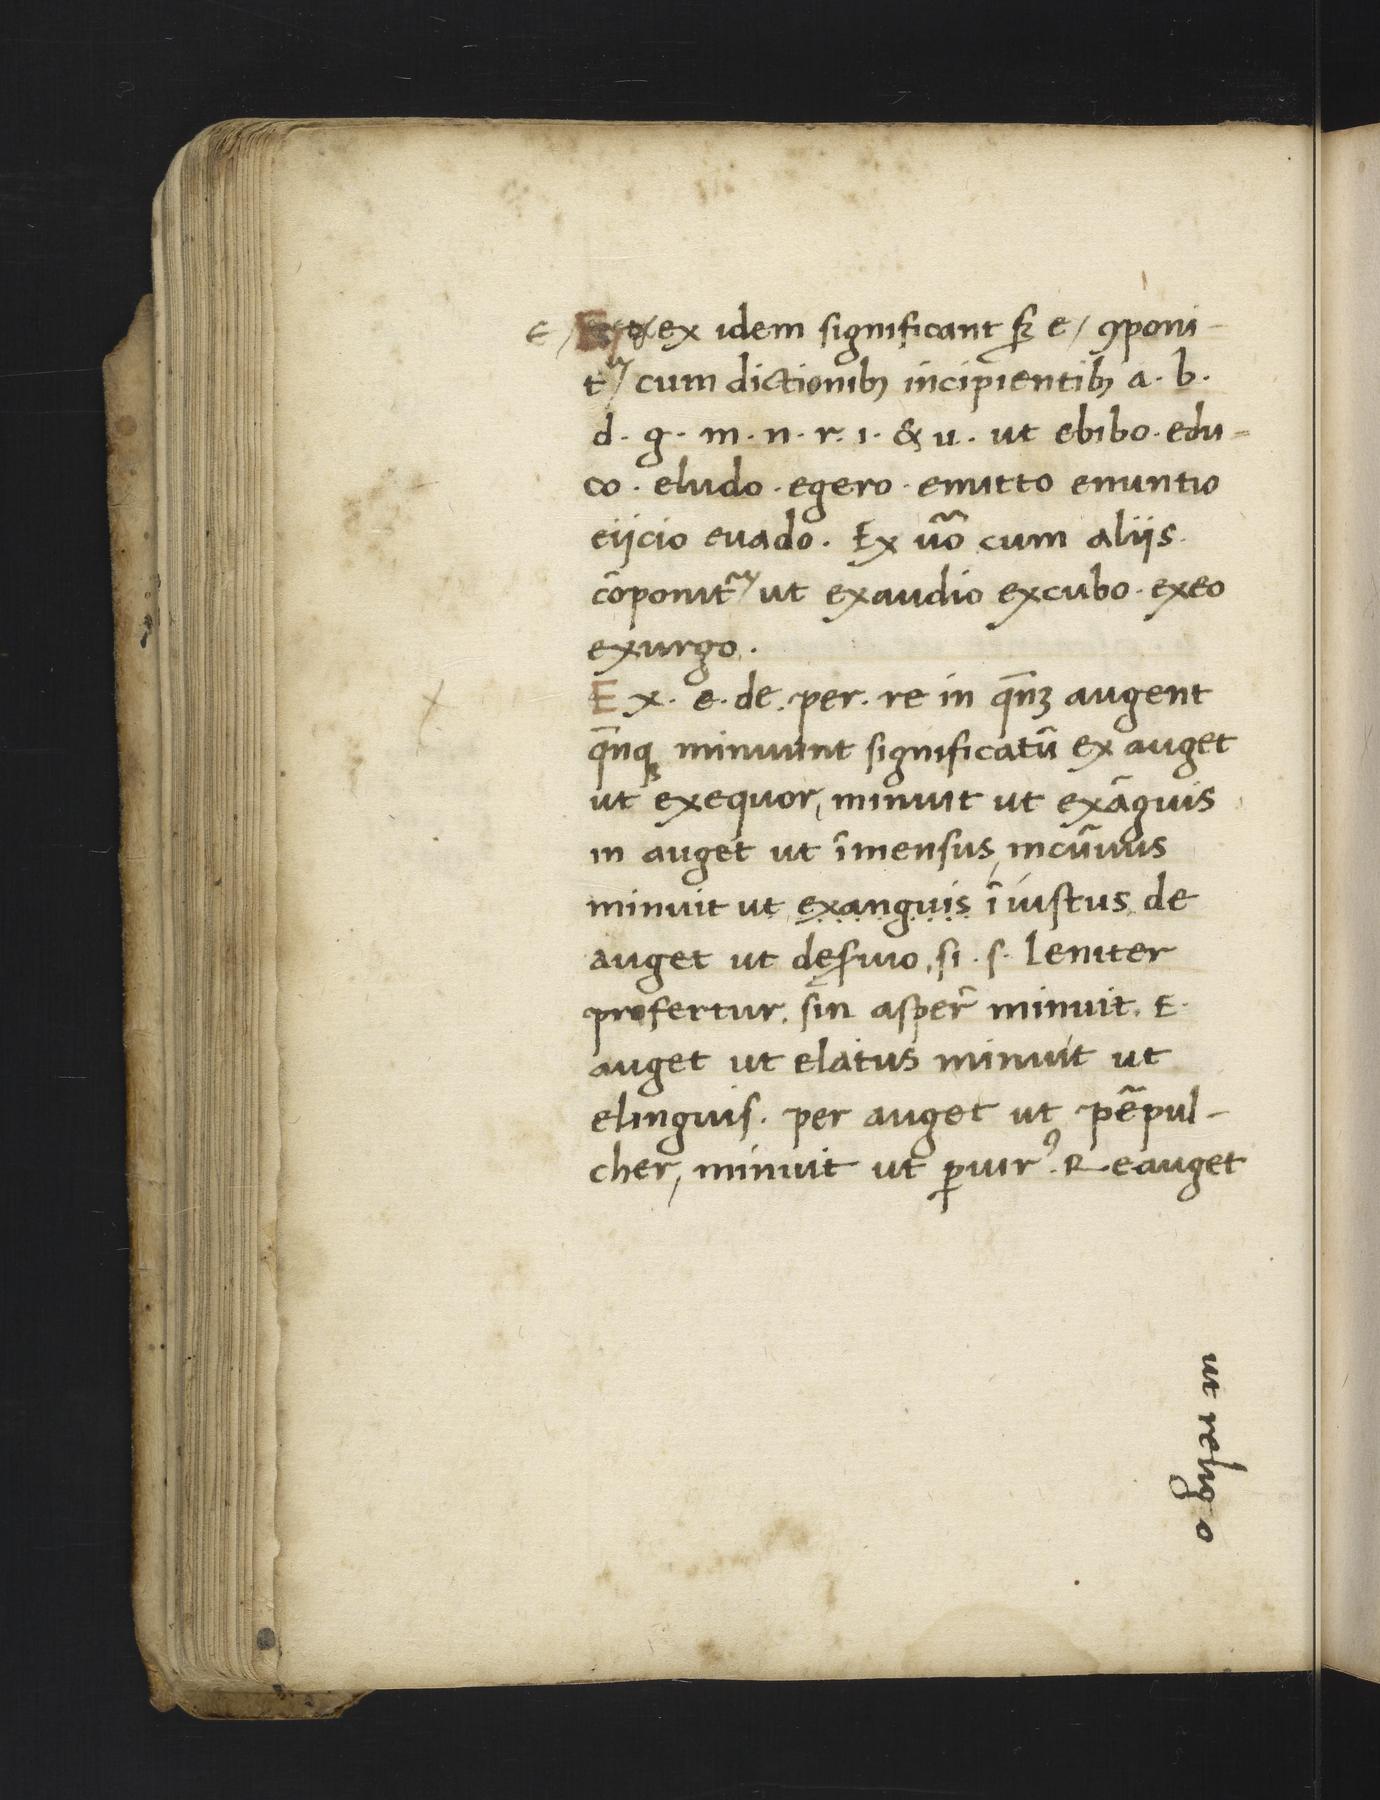 E/ & ex idem significant sꝫ e/ ꝯponi-
tᷣ cum dictionibꝫ incipientibꝫ a. b.
d. g. m. n. r. i. & u. ut ebibo. edu-
co. eludo. egero. emitto enuntio
eiicio euado. Ex uō cum aliis
cōponitᷣ ut exaudio excubo. exeo
exurgo.
Ex. e. de. per. re in q̄nꝫ augent
q̄nqꝫ minuunt significatū ex auget
ut exequor, minuit ut exāguis
in auget ut īmensus, incūuus
minuit ut exanguis īiustus de
auget ut desęuio, si. s. leniter
profertur. sin asper̄ minuit. E.
auget ut elatus minuit ut
elinguis. per auget ut pēpul-
cher, minuit ut ꝑiurꝰ. Re auget
ut religo